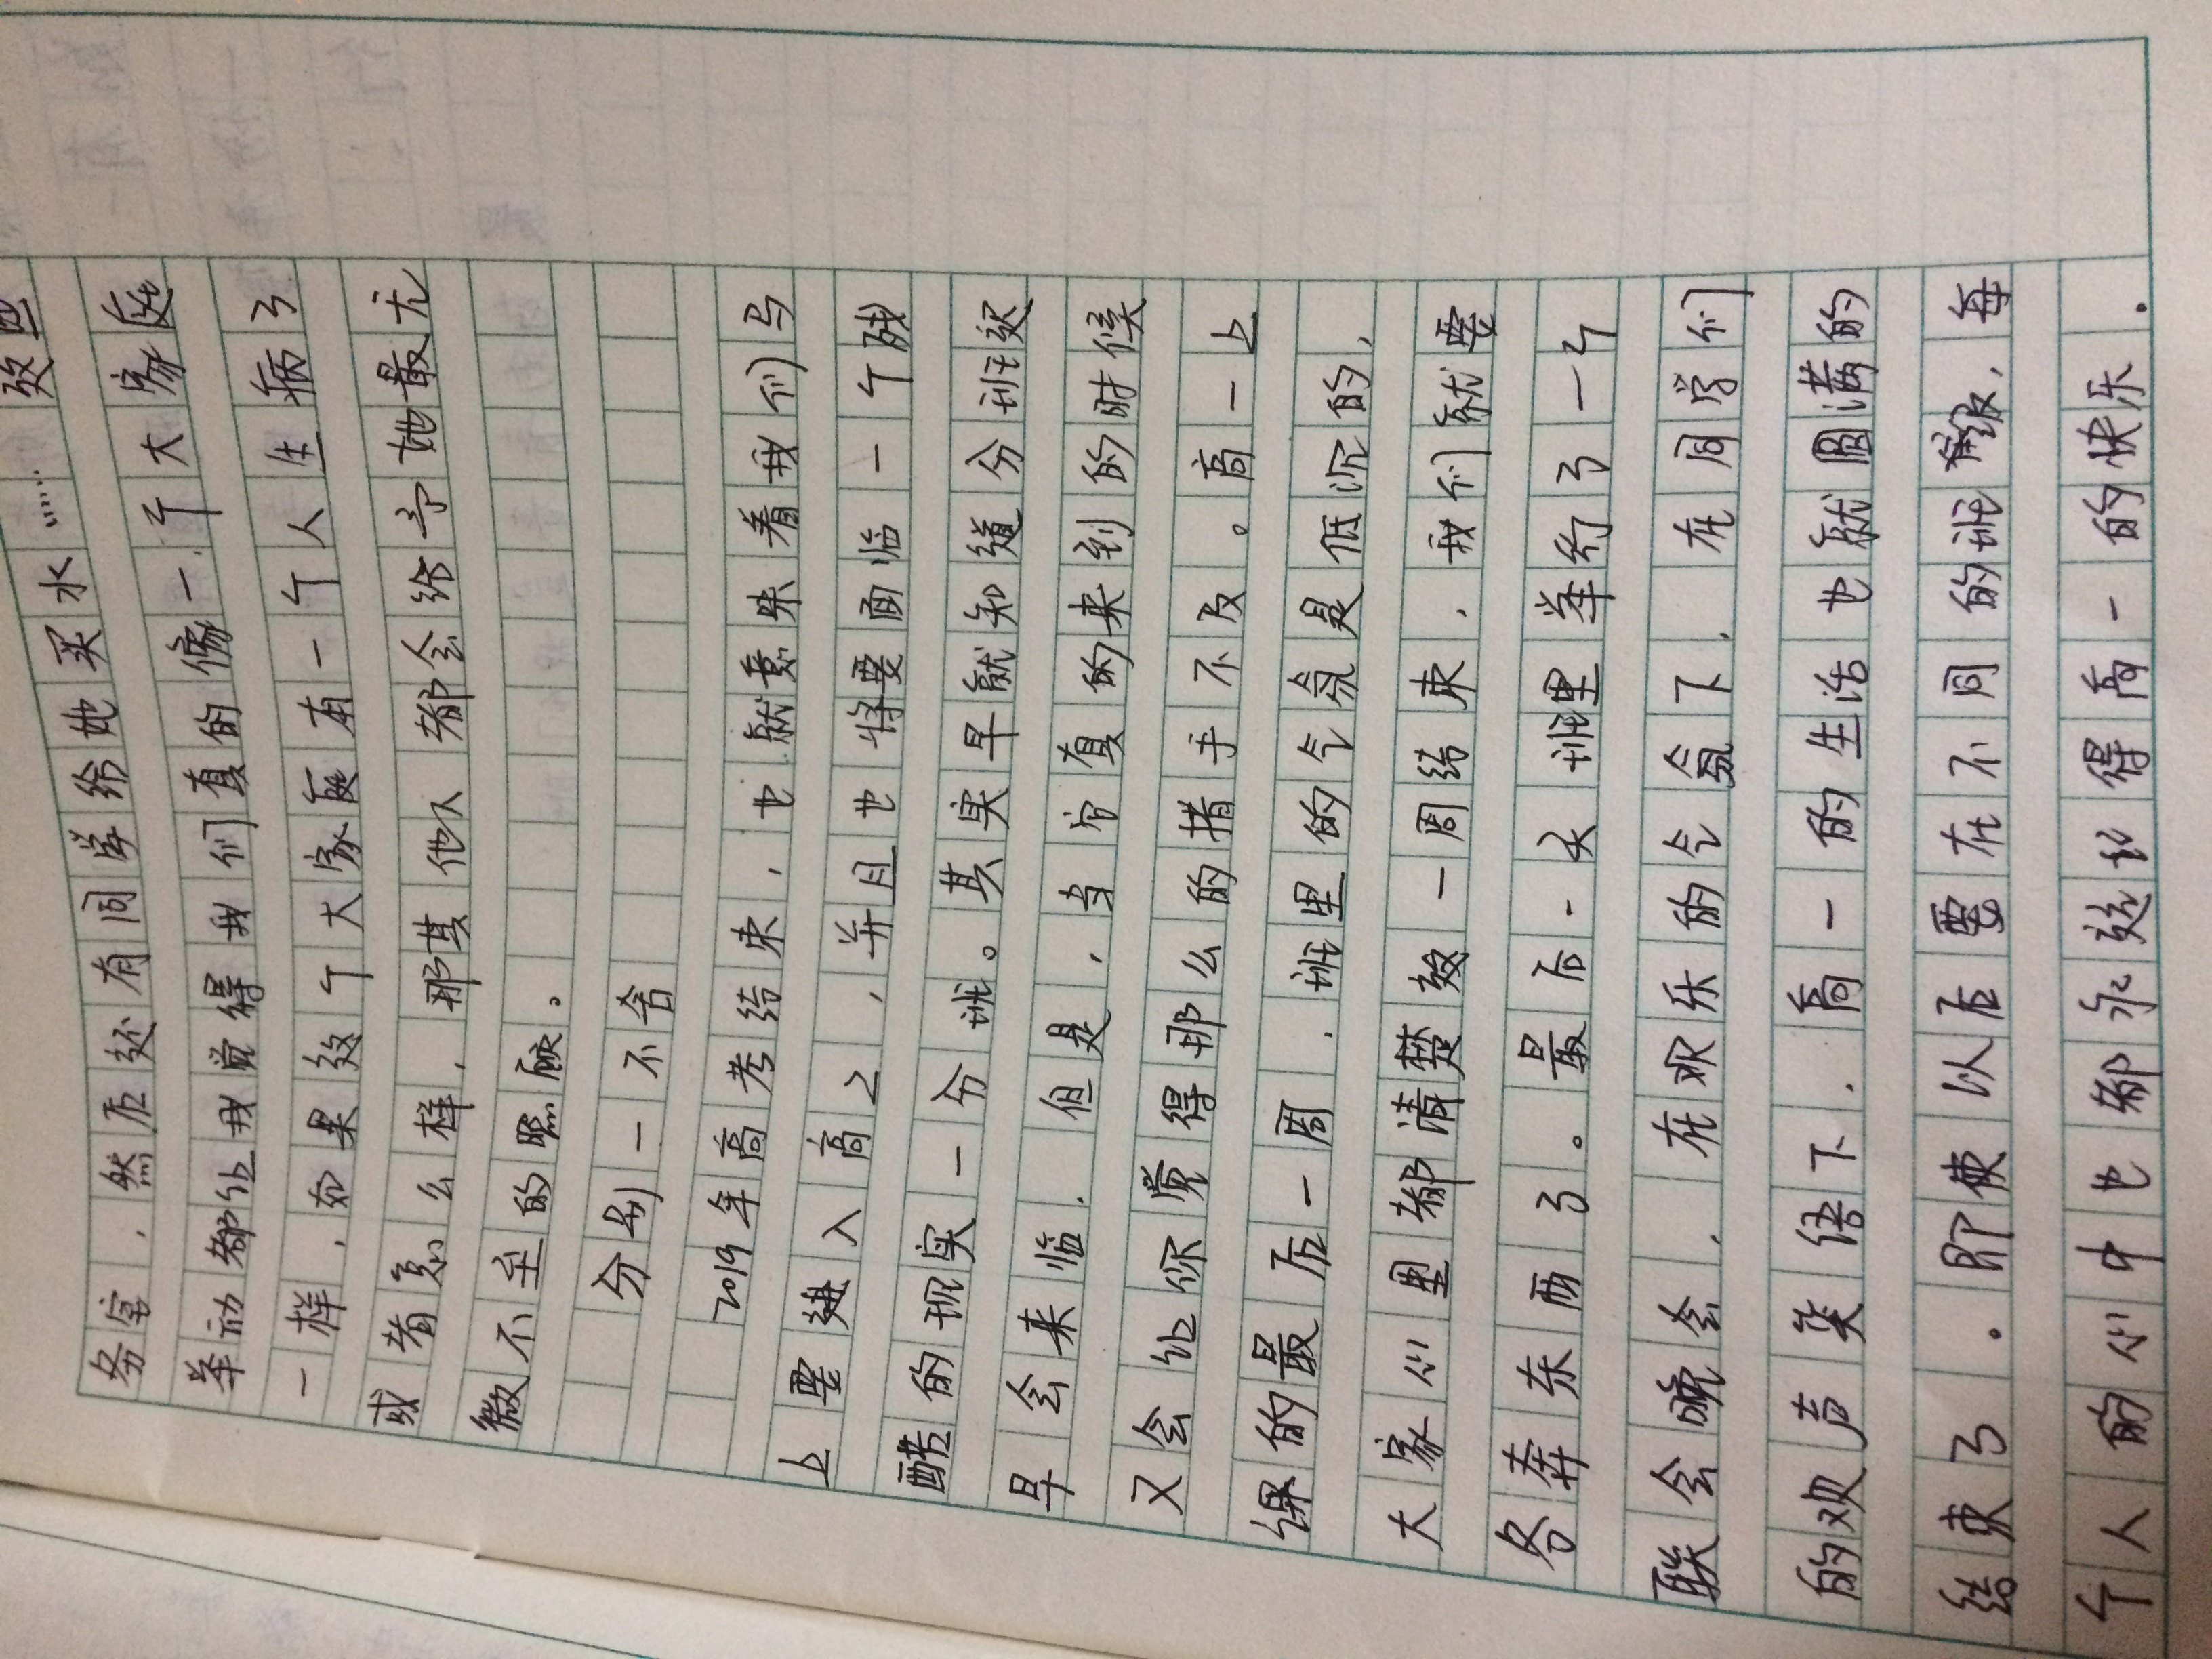 务室，然后还有同学给她买水……这些
举动都让我觉得我们真的像一个大家庭
一样，如果这个大家庭有一个人生病了
或者怎么样，那其他人都会给予她最无
微不至的照顾。
分别一不舍
2019年高考结束，也就意味着我们马
上要进入高二，并且也将要面临一个残
酷的现实一分班。其实早就知道分班迟
早会来临.但是，当它真的来到的时候
又会让你觉得那么的措手不及。高一上
课的最后一周.班里的气氛是低沉的，
大家心里都清楚这一周结束，我们就要
各奔东西了。最后一天班里举行了一个
联会晚会.在欢乐的气氛下.在同学们
的欢声笑语下.高一的生活也就圆满的
结束了。即使以后要在不同的班级，每
个人的心中也都永远记得高一的快乐.